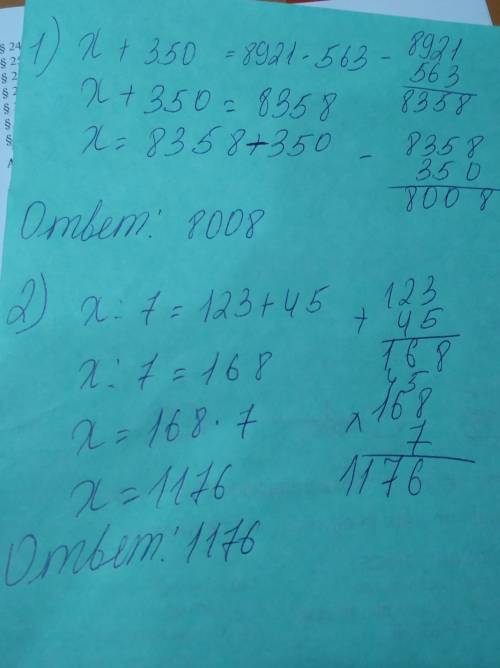 § 24
§ 2
§ 2
§ 2
§
§
§
1) x + 350 = 8921 - 563
- 8921
563
8358
x + 350 = 8358
x = 8358+350
- 8358
350
8008
Ответ: 8008
2) x : 7 = 123 + 45
+ 123
45
168
x : 7 = 168
x = 168 · 7
45
× 168
7
1176
x = 1176
Ответ: 1176